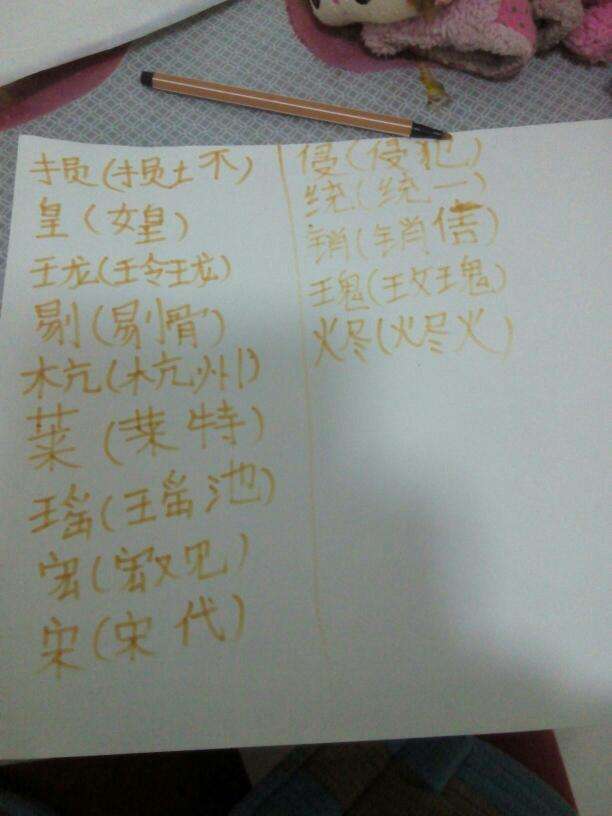 损(损坏)
皇(女皇)
珑(玲珑)
剔(剔骨)
杭(杭州)
莱(莱特)
瑶(瑶池)
宏(宏观)
宋(宋代)
侵(侵犯)
统(统一)
销(销售)
瑰(玫瑰)
烬(烬火)